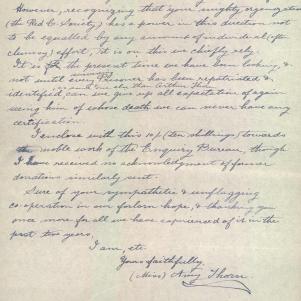 However, recognizing that your mighty organization
(the Red + Society) has a power in this direction not
to be equalled by any amount of individual (often
clumsy) effort, it is on this we chiefly rely.
It is to the present time we have been looking, &
not until every prisoner has been repatriated &
identified can we give up all expectation of again
seeing him of whose death we can never have any
certification.
I enclose with this 10/- (ten shillings) towards
the noble work of the Enquiry Bureau, though
I have received no acknowledgment of former
donations similarly sent.
Sure of your sympathetic & unflagging
co-operation in our forlorn hope, & thanking you
once more for all we have experienced of it in the
past two years,
I am, etc.
Yours faithfully,
(Miss) Amy Thorn